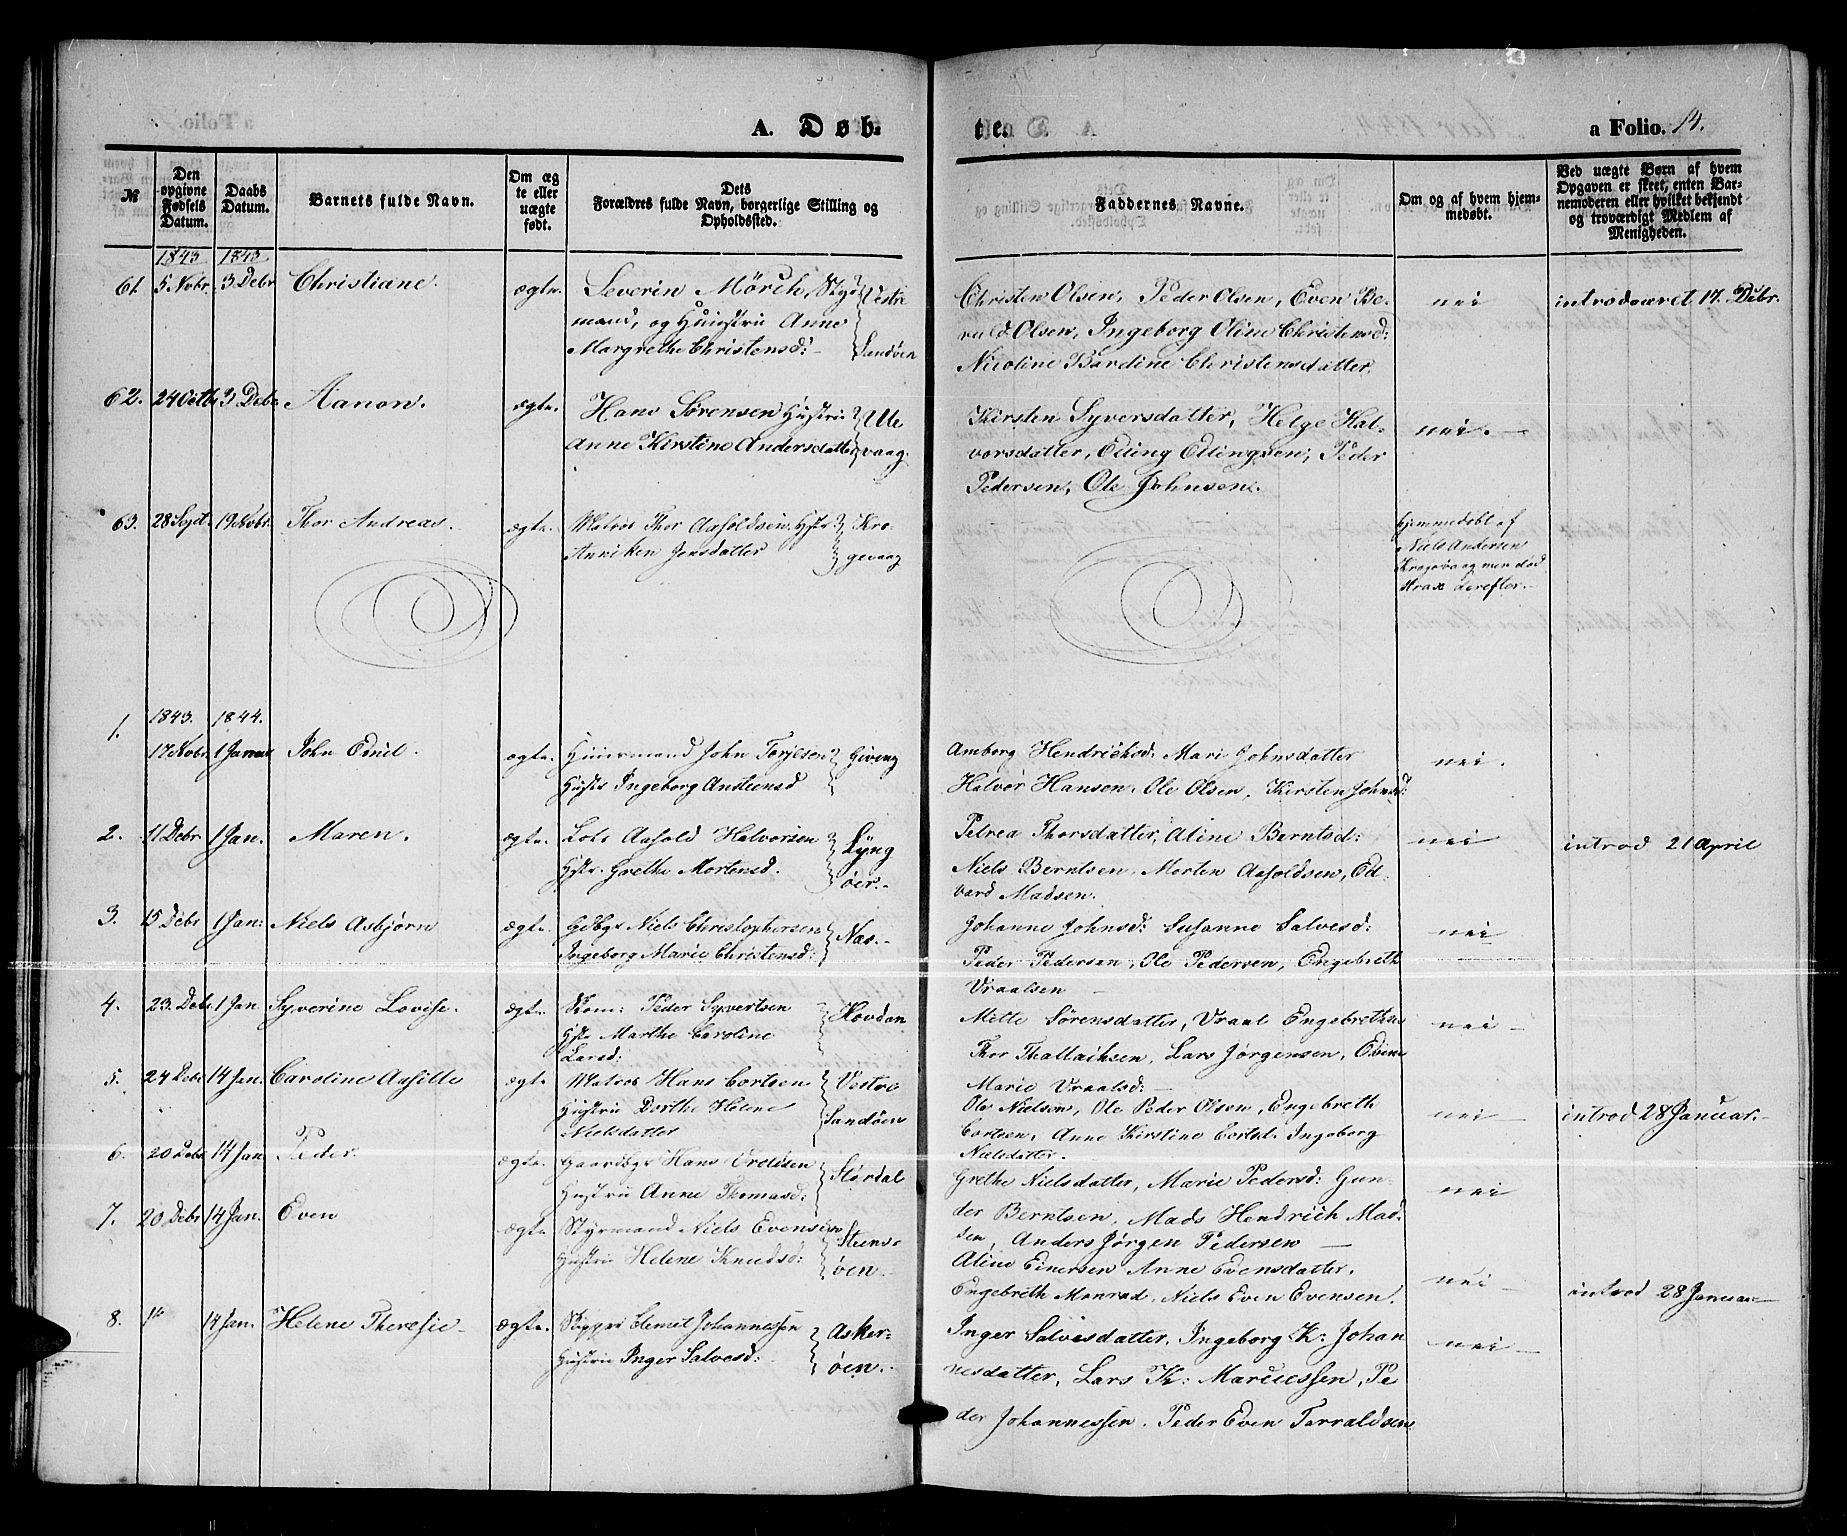 A. Døb=
te.
a Folio. 14.
№
Den opgivne Fødsels Datum.
Daabs Datum.
Barnets fulde Navn.
Om æg te eller uægte født.
Dets Forældres fulde Navn, borgerlige Stilling og Opholdssted.
Faddernes Navne.
Om og af hvem hjem- medøbt.
Ved uægte Børn af hvem Opgaven er skeet, enten Bar- nemoderen eller hvilket bekjendt og troværdigt Medlem af Menigheden.
1843 1843
61. 5 Nobr. 3 Debr Christiane. ægte. Severin Mörch, Styr Vestre
mand, og Huustru Anne
Margrethe Christensd: Sandøen
Christen Olsen, Peder Olsen, Even Be- nei introduceret 17. Debr.
rald Olsen, Ingeborg Oline Christensd:
Nicoline Bardine Christensdatter.
62. 24 Octb. 3 Debr Aanon. ægte. Hans Sørensen Hustru Ule
Anne Kirstine Andersdatter vaag.
Kirsten Syversdatter, Helge Hal- nei.
vorsdatter, Eding Edingsen, Peder
Pedersen, Ole Johnsen.
63. 28 Sept. 19 Nobr. Thor Andreas. ægte. Matros Thor Aasoldsen, Hstr Kro
Anniken Jensdatter gevaag
hjemmedøbt af
Niels Andersen
Krogevaag men død
strax derefter.
1843. 1844.
1. 17 Nobr. 1 Januar John Emil. ægte. Huusmand John Torjesen Giving
Hustr Ingeborg Anstensd
Amborg Hendrichsd: Mari Johnsdatter nei.
Halvor Hansen, Ole Olsen, Kirsten Johnsd:
2. 11 Debr 1 Jan. Maren. ægte. Lods Aasold Halvorsen Lyng
Hstr. Grethe Mortensd. øer.
Petrea Thorsdatter, Aline Berntsd: nei introd 21 April
Niels Berntsen, Morten Aasoldsen, Ed-
vard Madsen.
3. 15 Debr 1 Jan: Niels Asbjørn ægte. Gdbgr Niels Christophersen Næs.
Ingeborg Marie Christensd:
Johanne Johnsd: Susanne Salvesd: nei
Peder Pedersen, Ole Pedersen, Engebreth
Vraalsen
4. 23 Debr 1 Jan Syverine Lovise. ægte. Peder Syvertsen Hovdan
Hstr Marthe Caroline
Larsd:
Mette Sørensdatter, Vraal Engebrethsen nei
Thor Thallachsen, Lars Jørgensen, Edine
Marie Vraalsd:
5. 24 Debr 14 Jan. Caroline Aasille ægte Matros Hans Cortsen Vestre
Hustru Dorthe Helene Sandøen
Nielsdatter
Ole Nielsen, Ole Peder Olsen, Engebreth nei introd 28 Januar.
Cortsen, Anne Kirstine Cortsd. Ingeborg
Nielsdatter.
6. 20 Debr 14 Jan Peder. ægte. Gaardbgr Hans Stordal
Hustru Anne Thomasd:
Grethe Nielsdatter, Marie Pedersd: Gun- nei
der Berntsen, Mads Hendrich Mad-
sen, Anders Jørgen Pedersen
7. 20 Debr 14 Jan. Even ægte. Styrmand Niels Evensen Steens-
Hustru Helene Knudsd: øen.
Aline Einersen Anne Evensdatter.
Engebreth Monrad, Niels Even Evensen. nei introd 28 Januar
8. 14 Jan. Helene Theresie ægte. Skipper Clemet Johannessen Asker-
Hustru Inger Salvesd: øen.
Inger Salvesdatter, Ingeborg K: Johan nei
nesdatter, Lars K: Marcussen, Pe
der Johannessen, Peder Even Tarraldsen